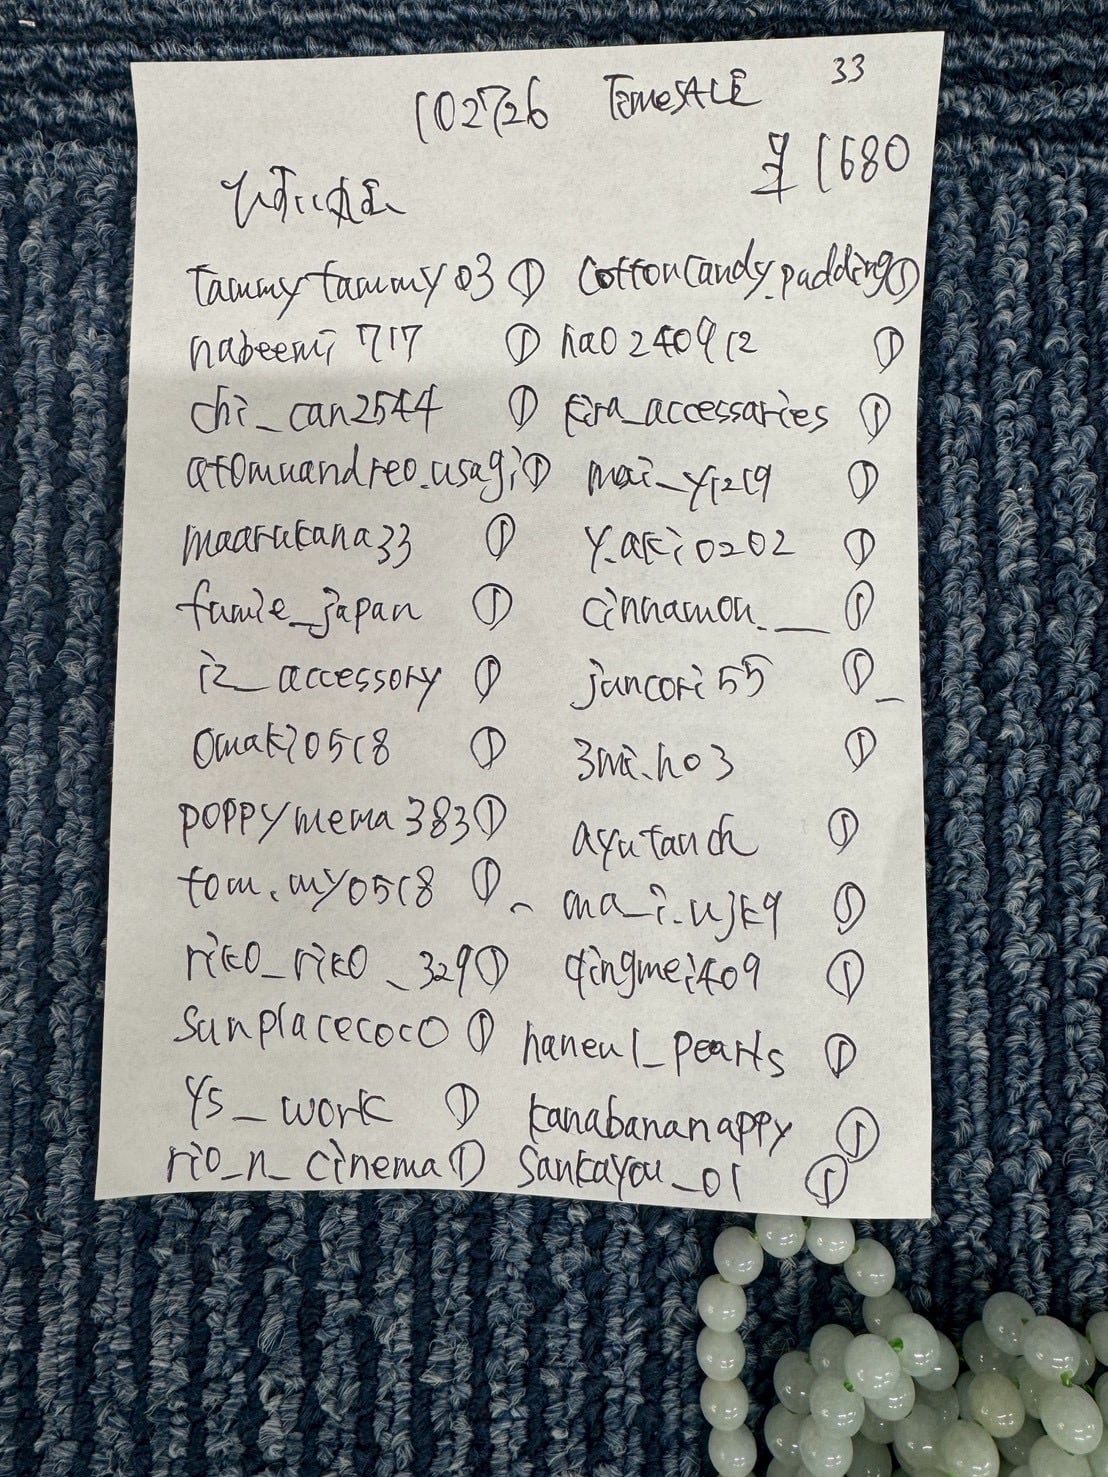 102726 TimeSALE 33
¥1680
tammytammy03 ① cottoncandy.pudding ①
nabeemi717 ① hao240912 ①
chi_can2544 ① kira_accessaries ①
atomuandreo.usagi ① mai_y1219 ①
maarukana33 ① y.aki0202 ①
fumie_japan ① cinnamon.__ ①
iz_accessory ① juncori55 ①
omaki0518 ① 3mi.ho3 ①
poppymema383 ① ayutanch ①
tom.my0518 ① ma_i.ujk9 ①
riko_riko_329 ① qingmei409 ①
sunplacecoco ① haneul_pearls ①
ys_work ① kanabananappy ①
rio_n_cinema ① sankayou_01 ①